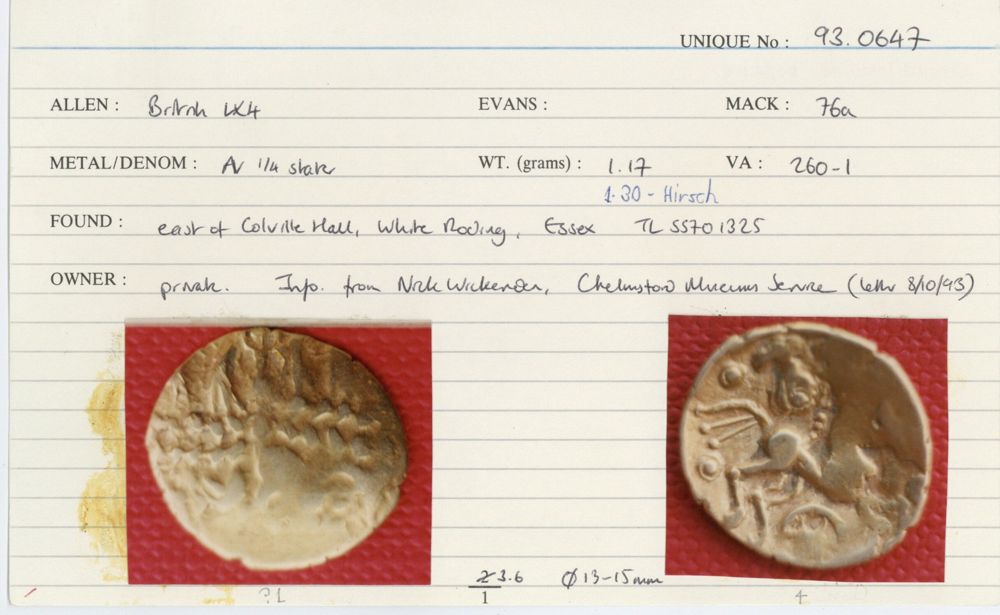 UNIQUE No : 93.0647
ALLEN : British LX4 EVANS : MACK : 76a
METAL/DENOM : AV 1/4 stater WT. (grams) : 1.17 VA : 260-1
1.30 - Hirsch
FOUND : east of Colville Hall, White Roding, Essex TL 5570 1325
OWNER : private. Info. from Nick Wickenden, Chelmsford Museums Service (letter 8/10/93)
3.6 Ø 13-15mm
1